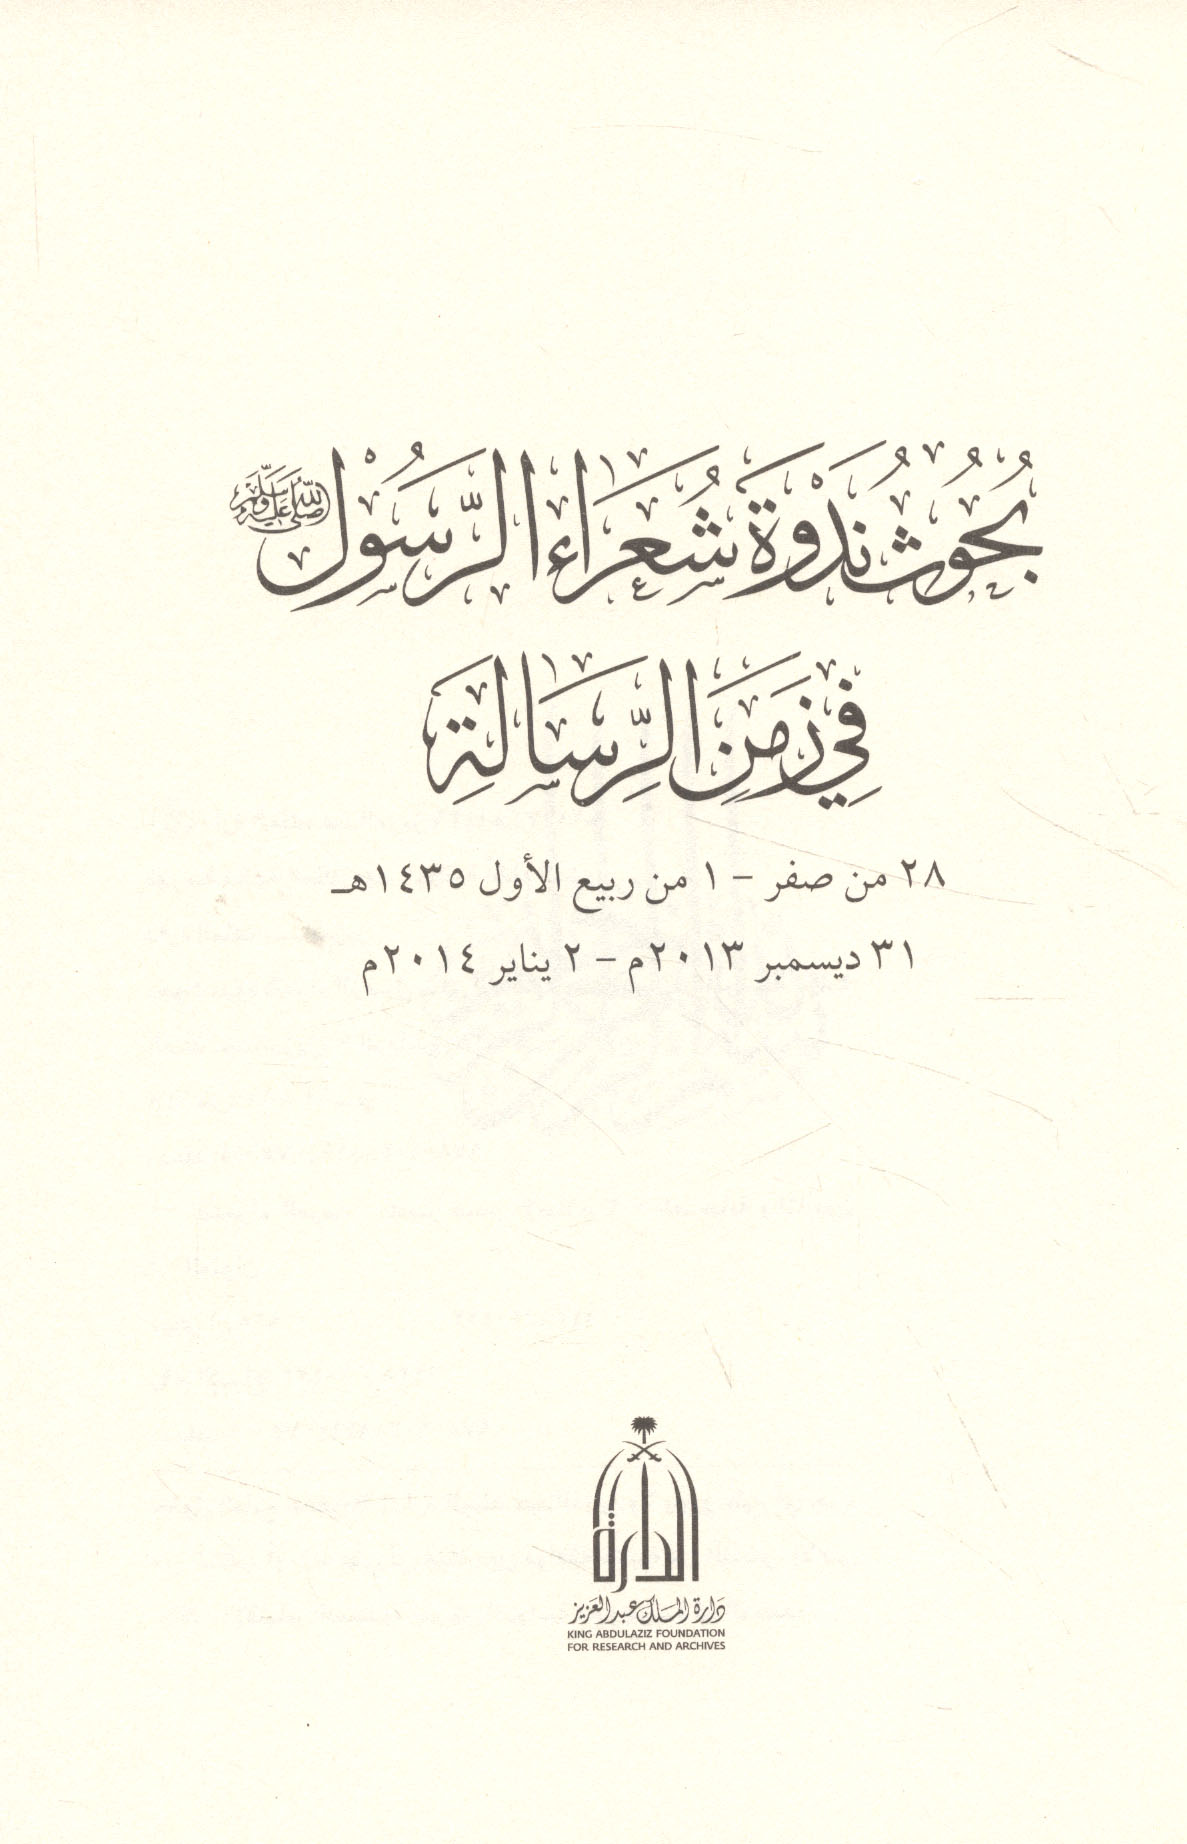 بُحُوث نَدْوَة شُعَرَاء الرَّسُوْل صلى الله عليه وسلم
فِي زَمَنِ الرِّسَالَةِ
٢٨ من صفر – ١ من ربيع الأول ١٤٣٥هـ
٣١ ديسمبر ٢٠١٣م – ٢ يناير ٢٠١٤م
الدارة
دارة الملك عبدالعزيز
KING ABDULAZIZ FOUNDATION
FOR RESEARCH AND ARCHIVES